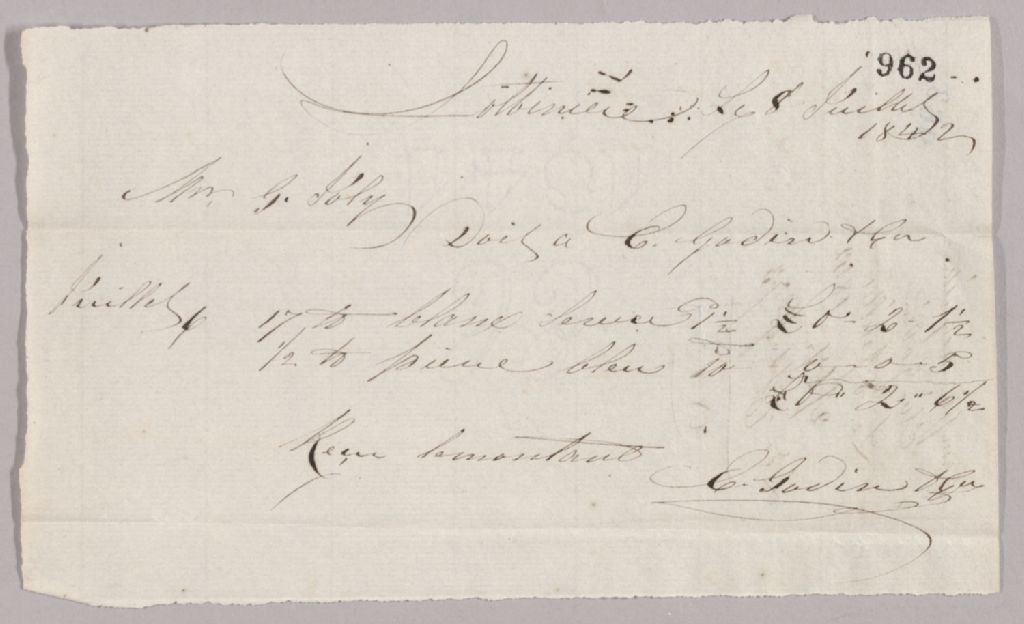 962
Lotbinière Le 8 Juillet
1842
Mr. G. Joly
Doit a C. Godin & Cie
Juillet 6 17 lb blanc Seruse @ 1½ £0 - 2 - 1½
½ lb pierre bleu 10 0 - 0 - 5
£0 " 2 " 6½
Reçu le montant
C. Godin & Cie